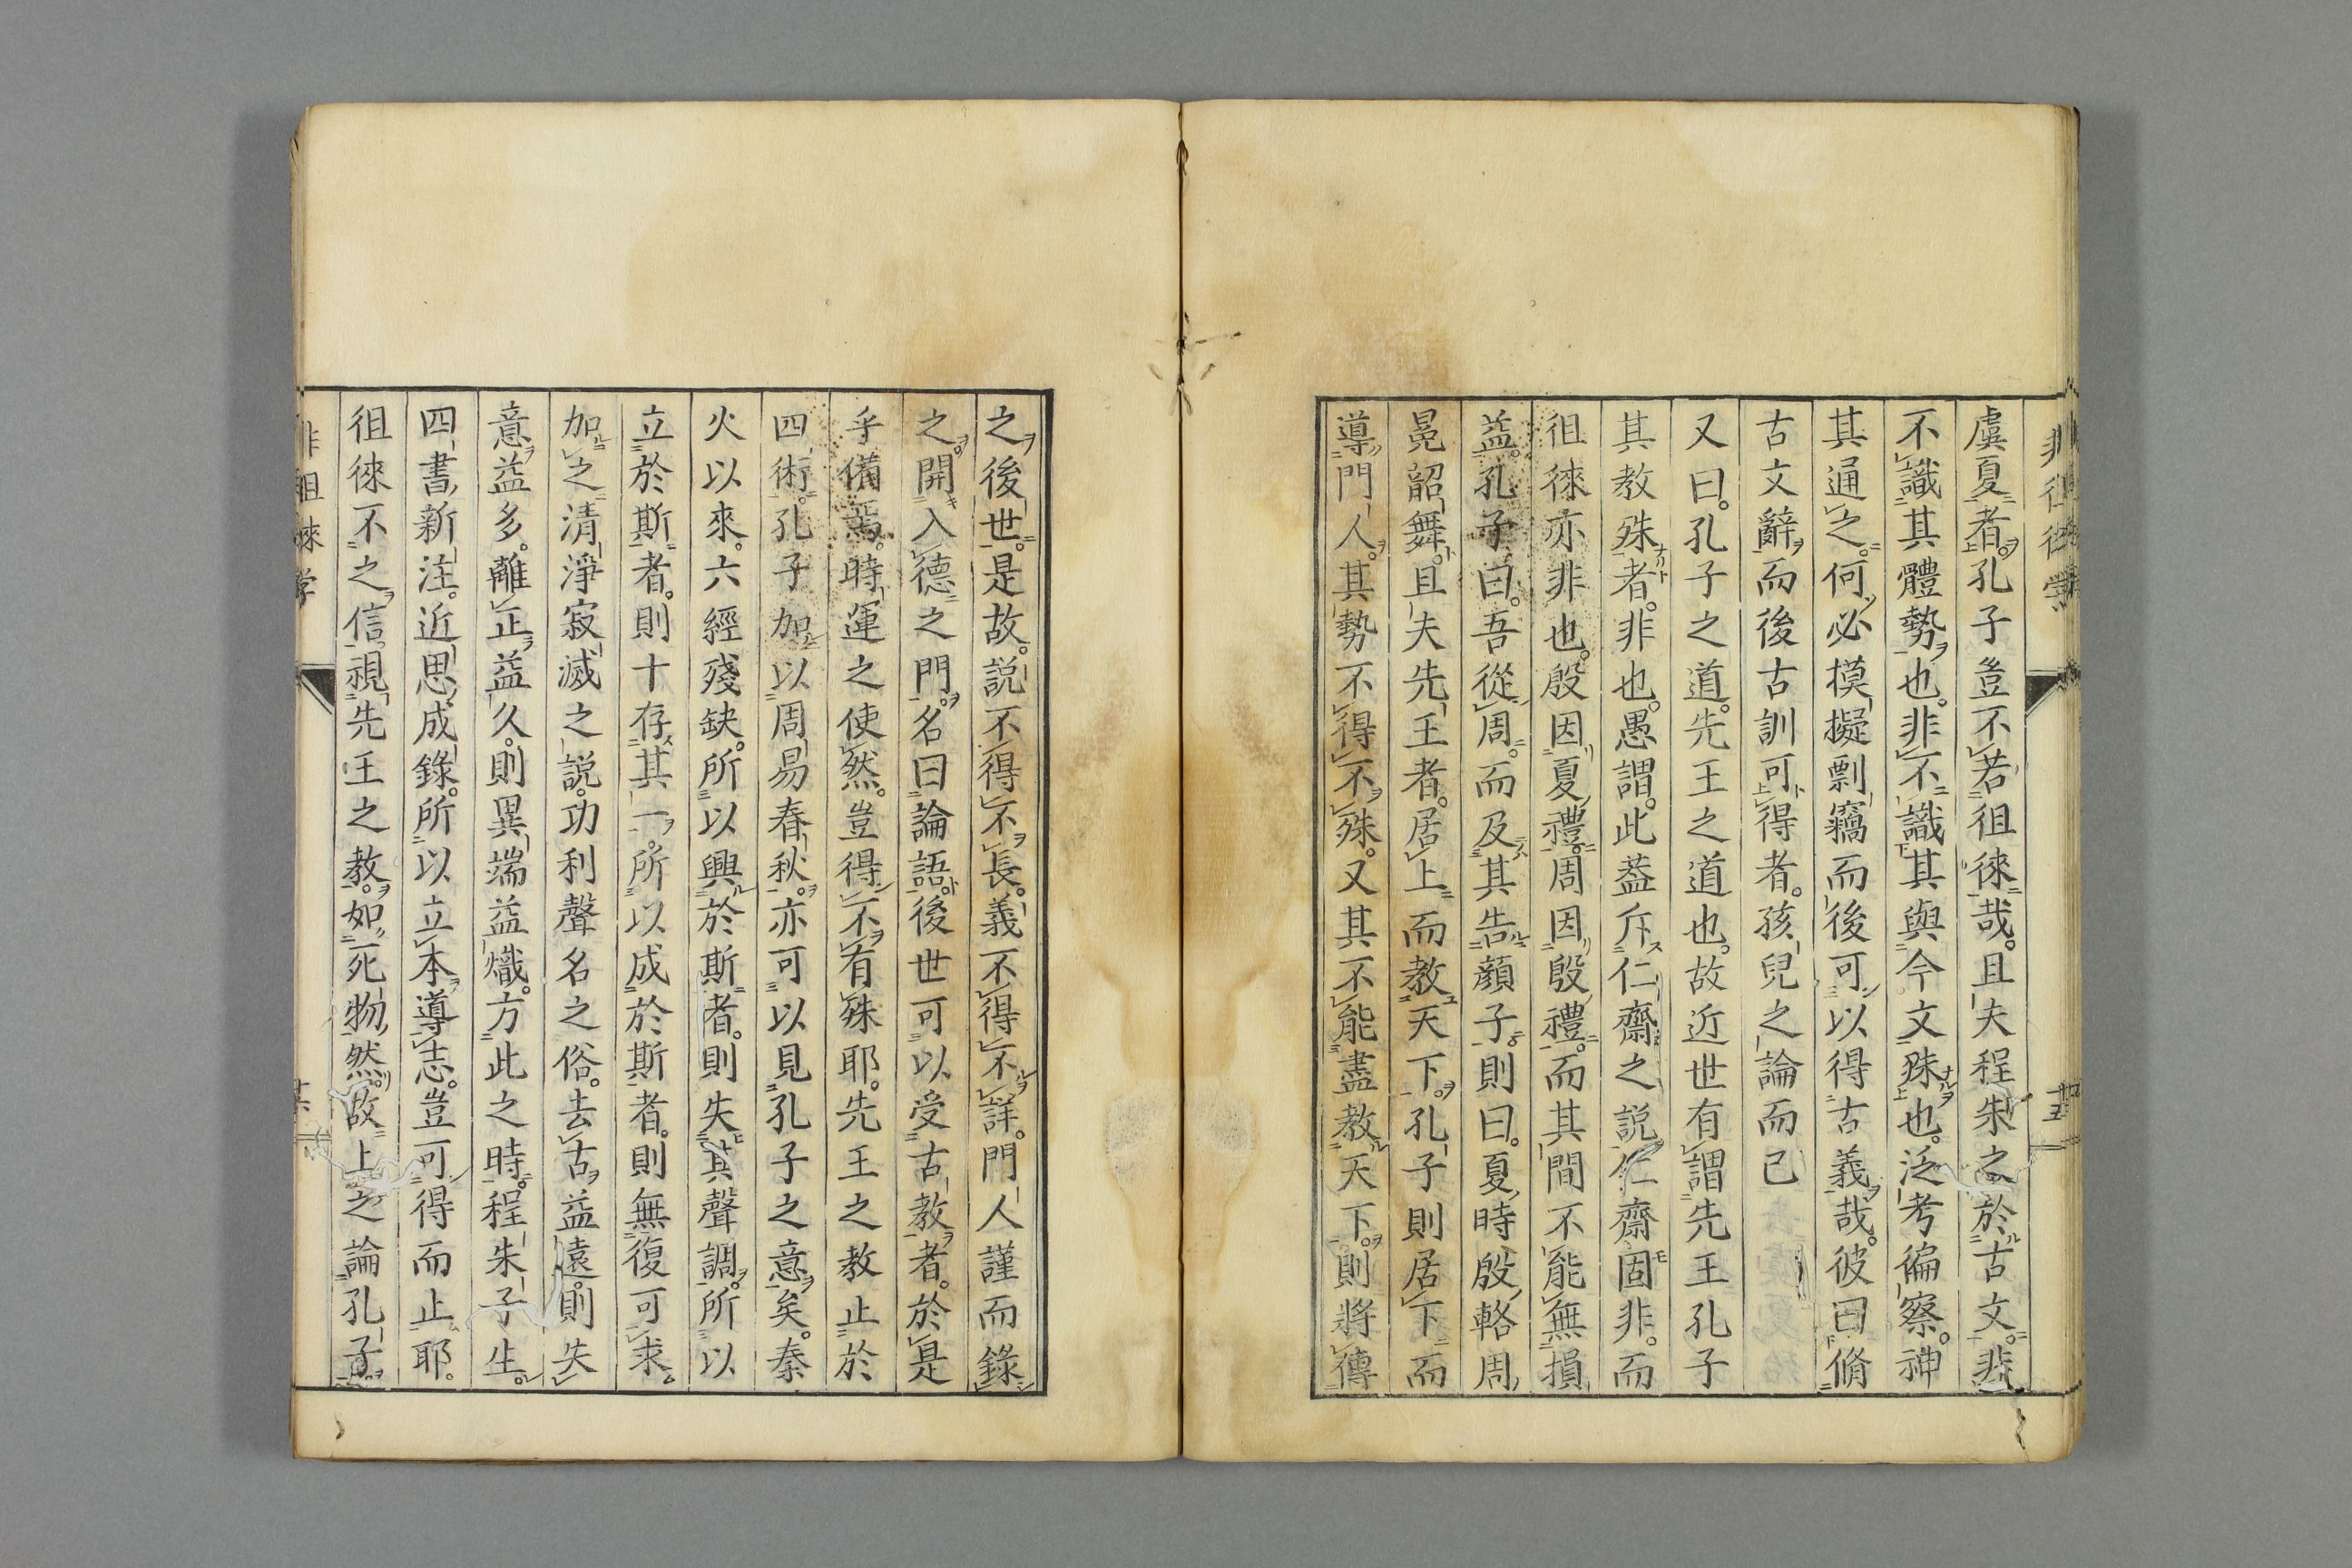 虞夏者。孔子豈不若徂徠哉。且夫程朱之於古文。非
不識其體勢也。非不識其與今文殊也。泛考徧察。神
其通之。何必摸擬剽竊而後可以得古義哉。彼曰脩
古文辭而後古訓可得者。孩兒之論而已
又曰。孔子之道。先王之道也。故近世有謂先王孔子
其教殊者。非也。愚謂。此蓋斥仁齋之說。仁齋固非。而
徂徠亦非也。殷因夏禮。周因殷禮。而其間不能無損
益。孔子曰。吾從周。而及其告顏子。則曰。夏時殷輅周
冕韶舞。且夫先王者。居上而教天下。孔子則居下而
導門人。其勢不得不殊。又其不能盡教天下。則將傳
之後世。是故。說不得不長。義不得不詳。門人謹而錄
之。開入德之門。名曰論語。後世可以受古教者。於是
乎備焉。時運之使然。豈得不有殊耶。先王之教止於
四術。孔子加以周易春秋。亦可以見孔子之意矣。秦
火以來。六經殘缺。所以興於斯者。則失其聲調。所以
立於斯者。則十存其一。所以成於斯者。則無復可求。
加之清淨寂滅之說。功利聲名之俗。去古益遠。則失
意益多。離正益久。則異端益熾。方此之時。程朱子生。
四書新注。近思成錄。所以立本導志。豈可得而止耶。
徂徠不之信。視先王之教。如死物然。故上之論孔子。